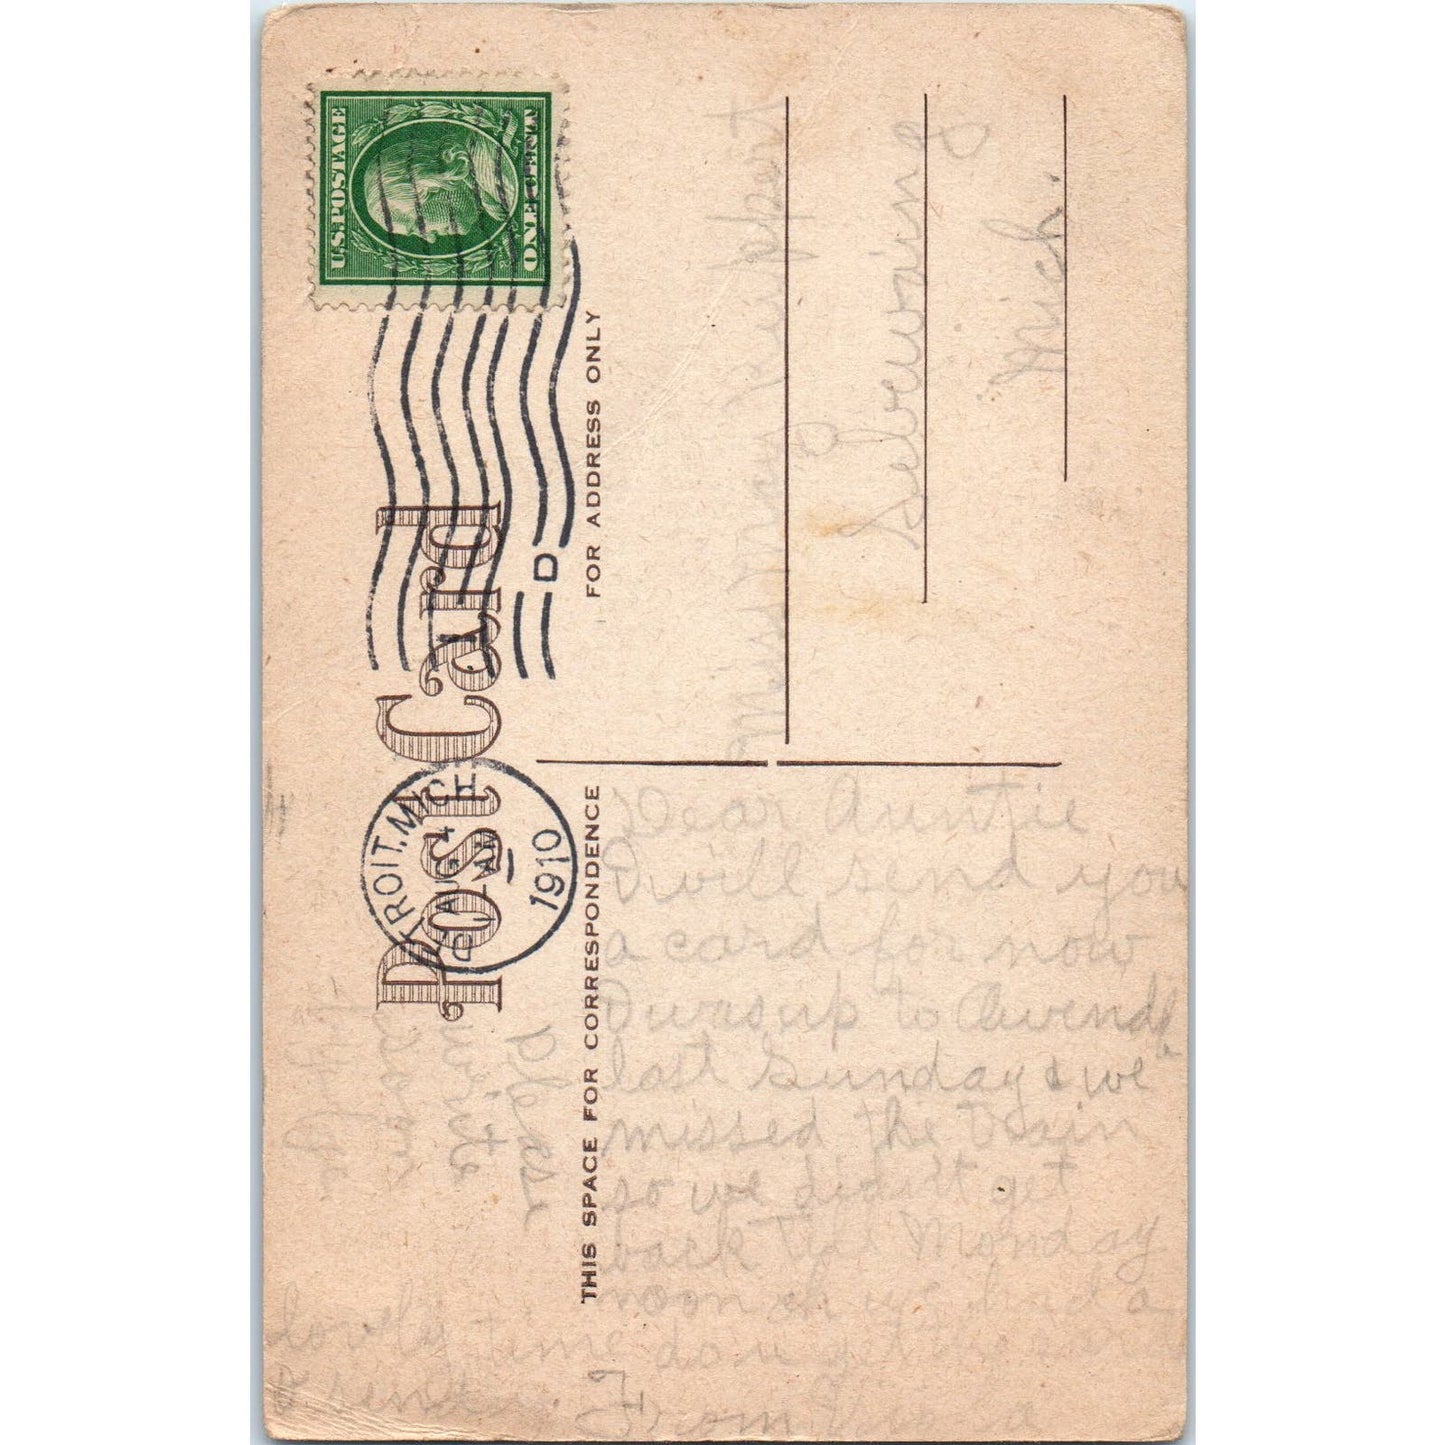 U.S. POSTAGE
ONE CENT
1 1
Post Card
DETROIT, MICH.
AUG 4
AM
1910
D
FOR ADDRESS ONLY
THIS SPACE FOR CORRESPONDENCE
Miss May
Sebewaing
Mich.
Dear Auntie
I will send you
a card for now
I was up to
last Sunday & we
missed the train
so we didn't get
back till Monday
noon oh we had a
lovely time don't
From
Please
write
soon